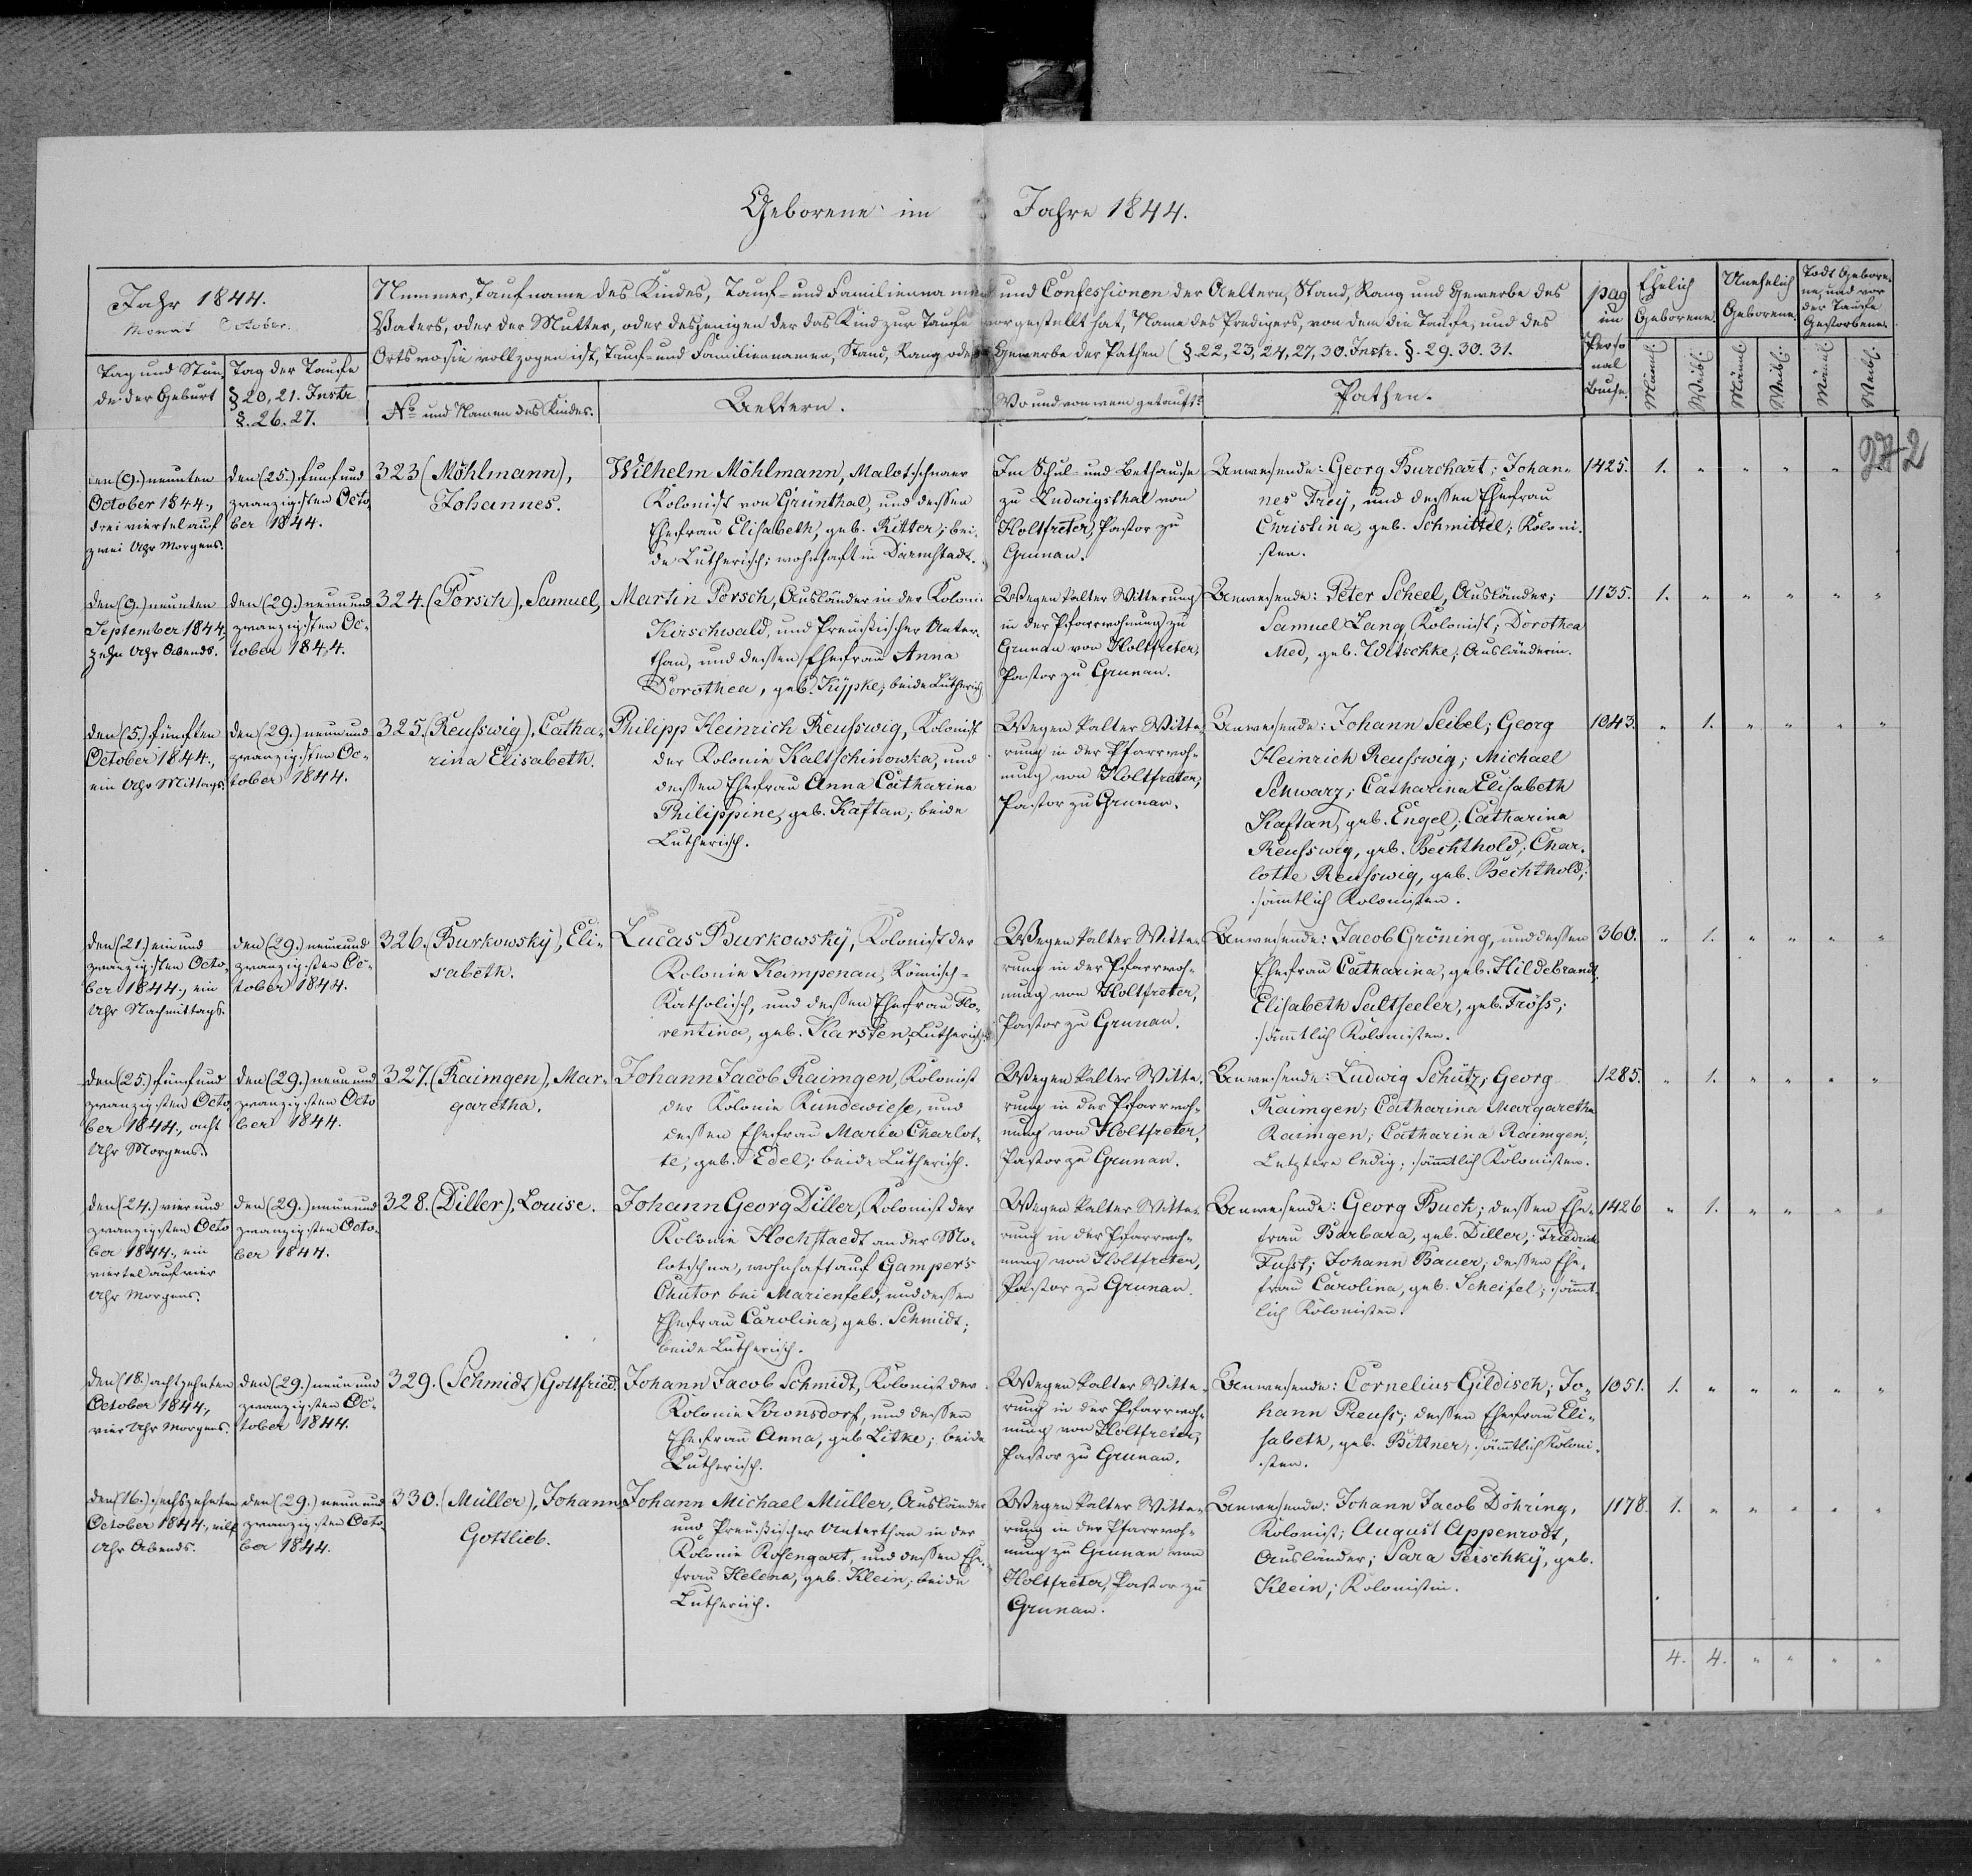 Geborene im Jahre 1844.
Jahr 1844.
Monat October.
Nummer, Taufname des Kindes, Tauf- und Familiennamen und Confessionen der Aeltern, Stand, Rang und Gewerbe des
Vaters, oder der Mutter, oder desjenigen der das Kind zur Taufe vorgestellt hat, Name des Predigers, von dem die Taufe, und des
Orts wo sie vollzogen ist, Tauf- und Familiennamen, Stand, Rang oder Gewerbe der Pathen (§. 22, 23, 24, 27, 30. Instr. §. 29. 30. 31.
pag
im
Perso
nal
Buche.
Ehelich
Geborene.
Unehelich
Geborene.
Todt Gebore-
ne, und vor
der Taufe
Gestorbene.
Tag und Stun-
de der Geburt
Tag der Taufe
§ 20, 21. Instr
§. 26. 27.
No und Namen des Kindes.
Aeltern.
Wo und von wem getauft?
Pathen.
Männl.
Weibl.
Männl.
Weibl.
Männl.
Weibl.
272
den (9.) neunten
October 1844.,
drei viertel auf
zwei Uhr Morgens.
den (25.) fünf und
zwanzigsten Octo
ber 1844.
323 (Möhlmann),
Johannes.
Wilhelm Möhlmann, Malotschnaer
Kolonist von Grünthal, und dessen
Ehefrau Elisabeth, geb. Ritter; bei-
de Lutherisch; wohnhaft in Darmstadt.
Im Schul- und Bethause
zu Ludwigsthal von
Holtfreter, Pastor zu
Grunau.
Anwesende: Georg Burchart; Johan-
nes Frey, und dessen Ehefrau
Christina, geb. Schmittel; Koloni-
sten.
1425. 1. " " " "
den (9.) neunten
September 1844,
zehn Uhr Abends.
den (29.) neun und
zwanzigsten Oc-
tober 1844.
324. (Porsch), Samuel,
Martin Porsch, Ausländer in der Kolonie
Kirschwald, und Preußischer Unter-
than, und dessen Ehefrau Anna
Dorothea, geb. Kypke; beide Lutherisch
Wegen kalter Witterung
in der Pfarrwohnung zu
Grunau von Holtfreter,
Pastor zu Grunau.
Anwesende: Peter Scheel, Ausländer;
Samuel Lang, Kolonist; Dorothea
Med, geb. Witschke; Ausländerin.
1135. 1. " " " " "
den (5.) fünften
October 1844.,
ein Uhr Mittags.
den (29.) neun und
zwanzigsten Oc-
tober 1844.
325. (Reußwig), Catha-
rina Elisabeth.
Philipp Heinrich Reußwig, Kolonist
der Kolonie Kaltschinowka, und
dessen Ehefrau Anna Catharina
Philippine, geb. Kaftan; beide
Lutherisch.
Wegen kalter Witte-
rung in der Pfarrwoh-
nung von Holtfreter,
Pastor zu Grunau.
Anwesende: Johann Seibel; Georg
Heinrich Reußwig; Michael
Schwarz; Catharina Elisabeth
Kaftan, geb. Engel; Catharina
Reußwig, geb. Bechthold; Char-
lotte Reußwig, geb. Bechthold;
sämtlich Kolonisten.
1043. " 1. " " " "
den (21.) ein und
zwanzigsten Octo-
ber 1844., ein
Uhr Nachmittags.
den (29.) neun und
zwanzigsten Oc-
tober 1844.
326. (Burkowsky), Eli-
sabeth.
Lucas Burkowsky, Kolonist der
Kolonie Kampenau, Römisch-
Katholisch, und dessen Ehefrau Flo-
rentina, geb. Karsten, Lutherisch.
Wegen kalter Witte-
rung in der Pfarrwoh-
nung von Holtfreter,
Pastor zu Grunau.
Anwesende: Jacob Gröning, und dessen
Ehefrau Catharina, geb. Hildebrandt,
Elisabeth Saltseeler, geb. Fröß;
sämmtlich Kolonisten.
360. " 1. " " " "
den (25.) fünf und
zwanzigsten Octo-
ber 1844., acht
Uhr Morgens.
den (29.) neun und
zwanzigsten Octo
ber 1844.
327. (Raimgen), Mar-
garetha.
Johann Jacob Raimgen, Kolonist
der Kolonie Rundewiese, und
dessen Ehefrau Maria Charlot-
te, geb. Edel; beide Lutherisch.
Wegen kalter Witte-
rung in der Pfarrwoh-
nung von Holtfreter,
Pastor zu Grunau.
Anwesende: Ludwig Schütz; Georg
Raimgen; Catharina Margaretha
Raimgen; Catharina Raimgen;
Letztere ledig; sämtlich Kolonisten.
1285. " 1. " " " "
den (24.) vier und
zwanzigsten Octo
ber 1844., ein
viertel auf vier
Uhr Morgens.
den (29.) neun und
zwanzigsten Octo-
ber 1844.
328. (Diller), Louise.
Johann Georg Diller, Kolonist der
Kolonie Hochstaedt an der Mo-
lotschna, wohnhaft auf Gampers
Chutor bei Marienfeld, und dessen
Ehefrau Carolina, geb. Schmidt;
beide Lutherisch.
Wegen kalter Witte-
rung in der Pfarrwoh-
nung von Holtfreter,
Pastor zu Grunau.
Anwesende: Georg Buch; dessen Ehe-
frau Barbara, geb. Diller; Friedrich
Fust; Johann Bauer, dessen Ehe-
frau Carolina, geb. Scheifel; sämt-
lich Kolonisten.
1426 " 1. " " " "
den (18.) achtzehnten
October 1844,
vier Uhr Morgens.
den (29.) neun und
zwanzigsten Oc-
tober 1844.
329. (Schmidt) Gottfried.
Johann Jacob Schmidt, Kolonist der
Kolonie Kronsdorf, und dessen
Ehefrau Anna, geb Litke; beide
Lutherisch.
Wegen kalter Witte-
rung in der Pfarrwoh-
nung von Holtfreter,
Pastor zu Grunau.
Anwesende: Cornelius Gildisch; Jo-
hann Preuß; dessen Ehefrau Eli-
sabeth, geb. Bittner; sämtlich Koloni-
sten.
1051. 1. " " " " "
den (16.) sechszehnten
October 1844., eilf
Uhr Abends.
den (29.) neun und
zwanzigsten Octo-
ber 1844.
330. (Müller), Johann
Gottlieb.
Johann Michael Müller, Ausländer
und Preußischer Unterthan in der
Kolonie Rosengart, und dessen Ehe-
frau Helena, geb. Klein; beide
Lutherisch.
Wegen kalter Witte-
rung in der Pfarrwoh-
nung zu Grunau von
Holtfreter, Pastor zu
Grunau.
Anwesende: Johann Jacob Döhring,
Kolonist; August Appenrodt,
Ausländer; Sara Perschky, geb.
Klein; Kolonistin.
1178. 1. " " " " "
4. 4. " " " "